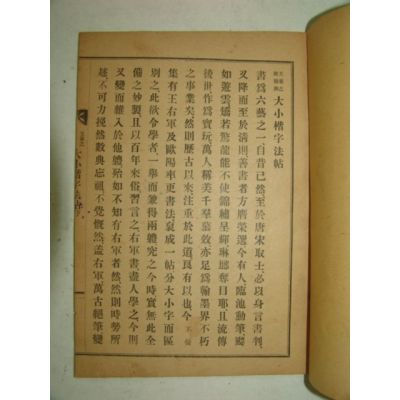 王羲之
歐陽詢 大小楷字法帖
書爲六藝之一自昔已然至於唐宋取士必以身言書判
又降而至於淸則善書者方膺榮選今有人臨池動筆
如遊雲若驚龍能不使錦繡呈輝琳瑯奪目且流傳
後世作爲寶玩萬人稱美千羣慕效亦足爲翰墨界不朽
之事業矣然則歷古以來注重於此道良有以也今不佞
集有王右軍及歐陽率更書法裒成一帖分大小字而區
別之此欲令學者一擧而兼得兩體究之今時實無此全
備之妙製且以百年來俗習言之右軍書盡人學之今則
又變而離入於他體殆如不知有右軍者然然則時勢所
趨不可力挽然數典忘祖不覺慨然蓋右軍萬古絕筆變
大小楷字法帖